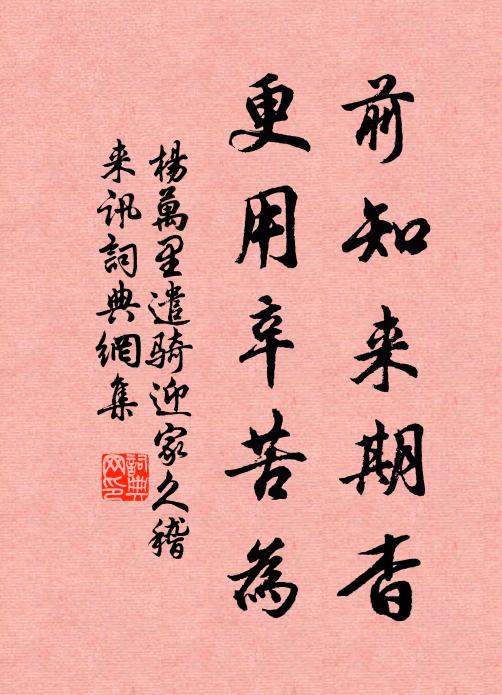 前知来期杳
更用辛苦為
楊萬里遣騎迎家久稽
来訊詞典網集
詞典
网印